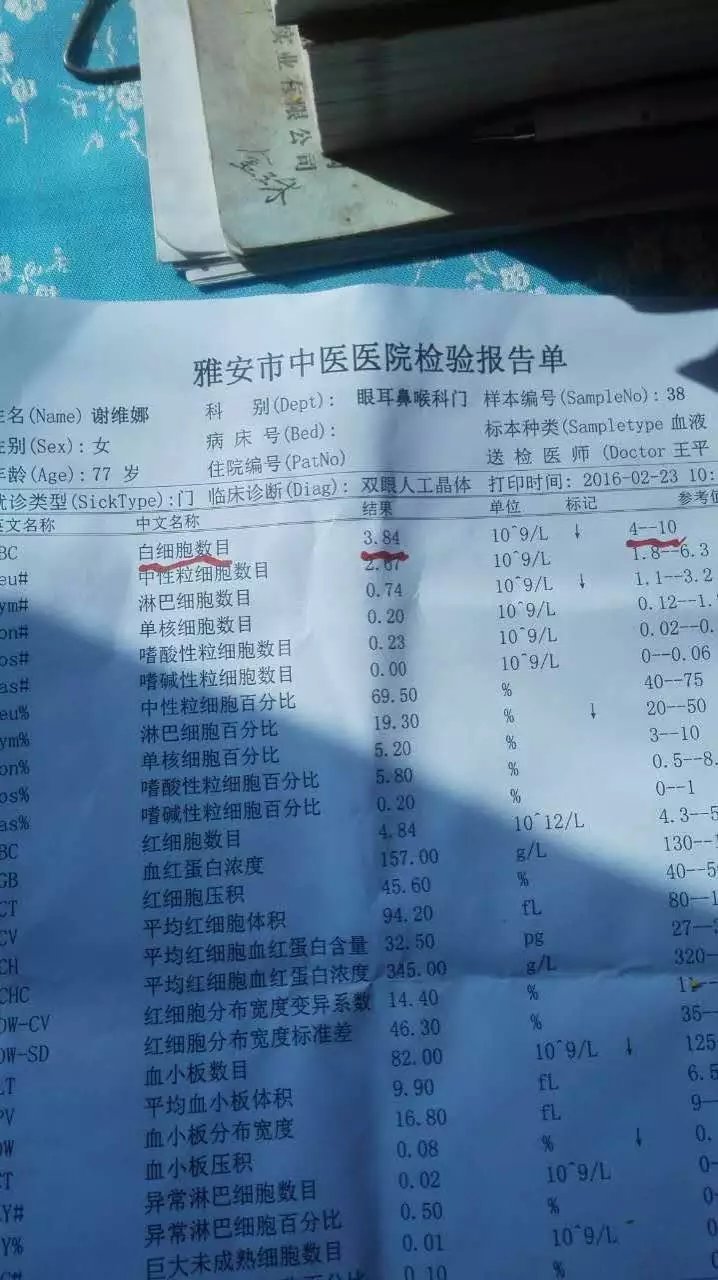 实业有限公司
雅安市中医医院检验报告单
姓名(Name) 谢维娜 科 别(Dept): 眼耳鼻喉科门 样本编号(SampleNo): 38
性别(Sex): 女 病 床 号(Bed): 标本种类(Sampletype 血液
年龄(Age): 77 岁 住院编号(PatNo) 送 检 医 师 (Doctor 王平
就诊类型(SickType):门 临床诊断(Diag): 双眼人工晶体 打印时间: 2016-02-23 10:
英文名称 中文名称 结果 单位 标记 参考值
BC 白细胞数目 3.84 10^9/L ↓ 4--10
eu# 中性粒细胞数目 2.67 10^9/L 1.8--6.3
ym# 淋巴细胞数目 0.74 10^9/L ↓ 1.1--3.2
on# 单核细胞数目 0.20 10^9/L 0.12--1.
os# 嗜酸性粒细胞数目 0.23 10^9/L 0.02--0.
as# 嗜碱性粒细胞数目 0.00 10^9/L 0--0.06
eu% 中性粒细胞百分比 69.50 % 40--75
ym% 淋巴细胞百分比 19.30 % ↓ 20--50
on% 单核细胞百分比 5.20 % 3--10
os% 嗜酸性粒细胞百分比 5.80 % 0.5--8.
as% 嗜碱性粒细胞百分比 0.20 % 0--1
BC 红细胞数目 4.84 10^12/L 4.3--5
GB 血红蛋白浓度 157.00 g/L 130--1
CT 红细胞压积 45.60 % 40--5
CV 平均红细胞体积 94.20 fL 80--1
CH 平均红细胞血红蛋白含量 32.50 pg 27--3
CHC 平均红细胞血红蛋白浓度 345.00 g/L 320--
DW-CV 红细胞分布宽度变异系数 14.40 % 11--
DW-SD 红细胞分布宽度标准差 46.30 % 35--
LT 血小板数目 82.00 10^9/L ↓ 125
PV 平均血小板体积 9.90 fL 6.5
DW 血小板分布宽度 16.80 fL 9--
CT 血小板压积 0.08 % ↓ 0.
LY# 异常淋巴细胞数目 0.02 10^9/L 0-
LY% 异常淋巴细胞百分比 0.50 % 0-
巨大未成熟细胞数目 0.01 10^9/L 0
0.10 %